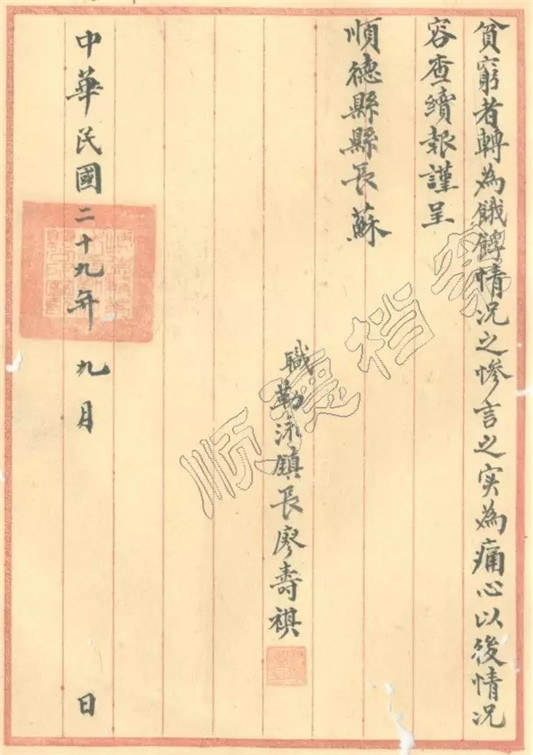 貧窮者轉為餓殍情况之慘言之实為痛心以後情况
容查續報謹呈
順德縣縣長蘇
職勒流鎮長廖壽祺
中華民國二十九年九月 日
顺德档案